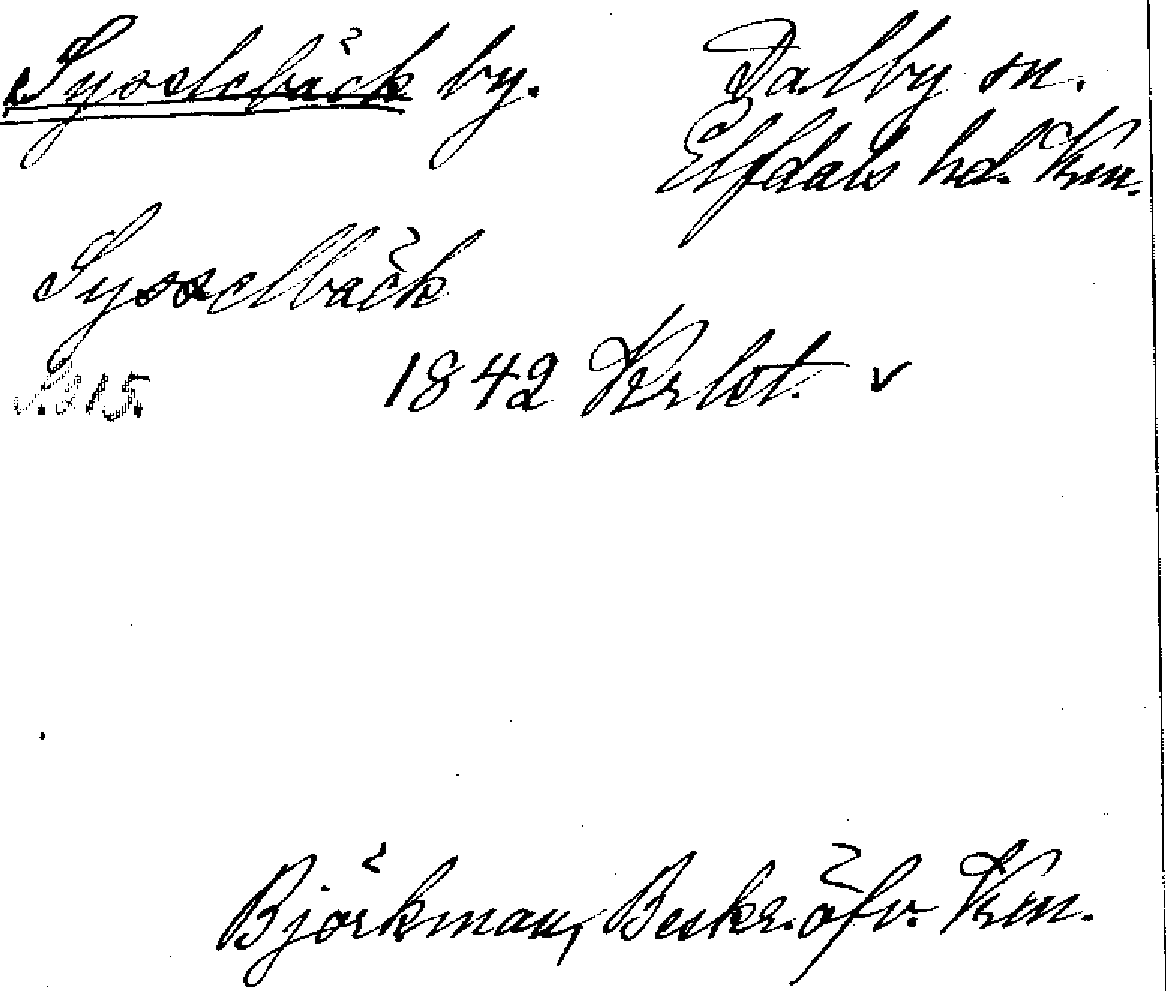 Sysslebäck by. Dalby sn.
Elfdals hd. Vrm.
Sysselbäck
s. 315. 1842 Vrlst. v
Björkman, Beskr. öfv. Vrm.